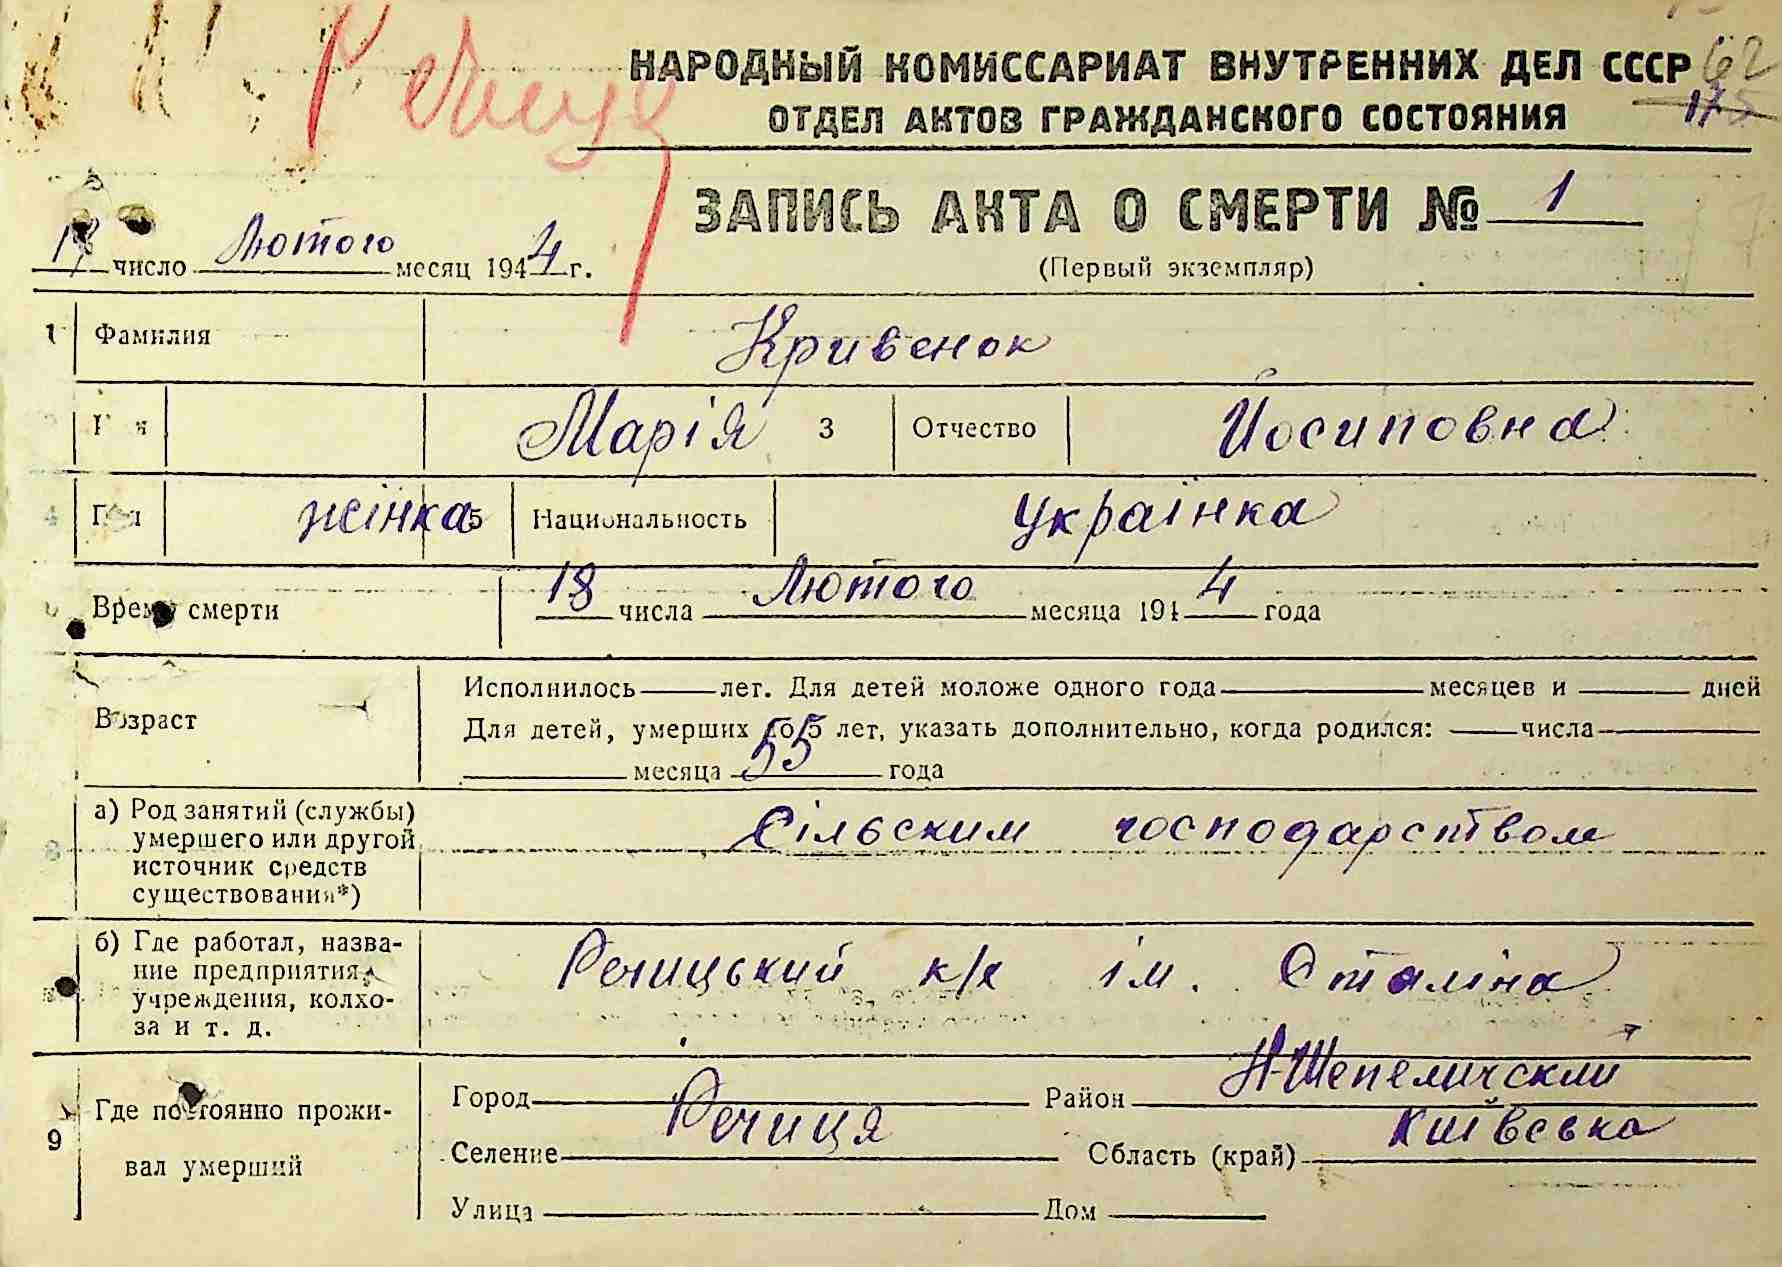 Речиця
62
175
НАРОДНЫЙ КОМИССАРИАТ ВНУТРЕННИХ ДЕЛ СССР
ОТДЕЛ АКТОВ ГРАЖДАНСКОГО СОСТОЯНИЯ
ЗАПИСЬ АКТА О СМЕРТИ № 1
число Лютого месяц 1944 г.
(Первый экземпляр)
1 Фамилия Кривенок
Марія 3 Отчество Йосиповна
4 Пол жінка 5 Национальность Українка
Время смерти 18 числа Лютого месяца 1944 года
Возраст Исполнилось лет. Для детей моложе одного года месяцев и дней
Для детей, умерших до 5 лет, указать дополнительно, когда родился: числа
месяца 55 года
8 а) Род занятий (службы) умершего или другой источник средств существования*) Сільським господарством
б) Где работал, название предприятия, учреждения, колхоза и т. д. Речицький к/г ім. Сталіна
9 Где постоянно проживал умерший
Город Район Н-Шепеличский
Селение Речиця Область (край) Київська
Улица Дом